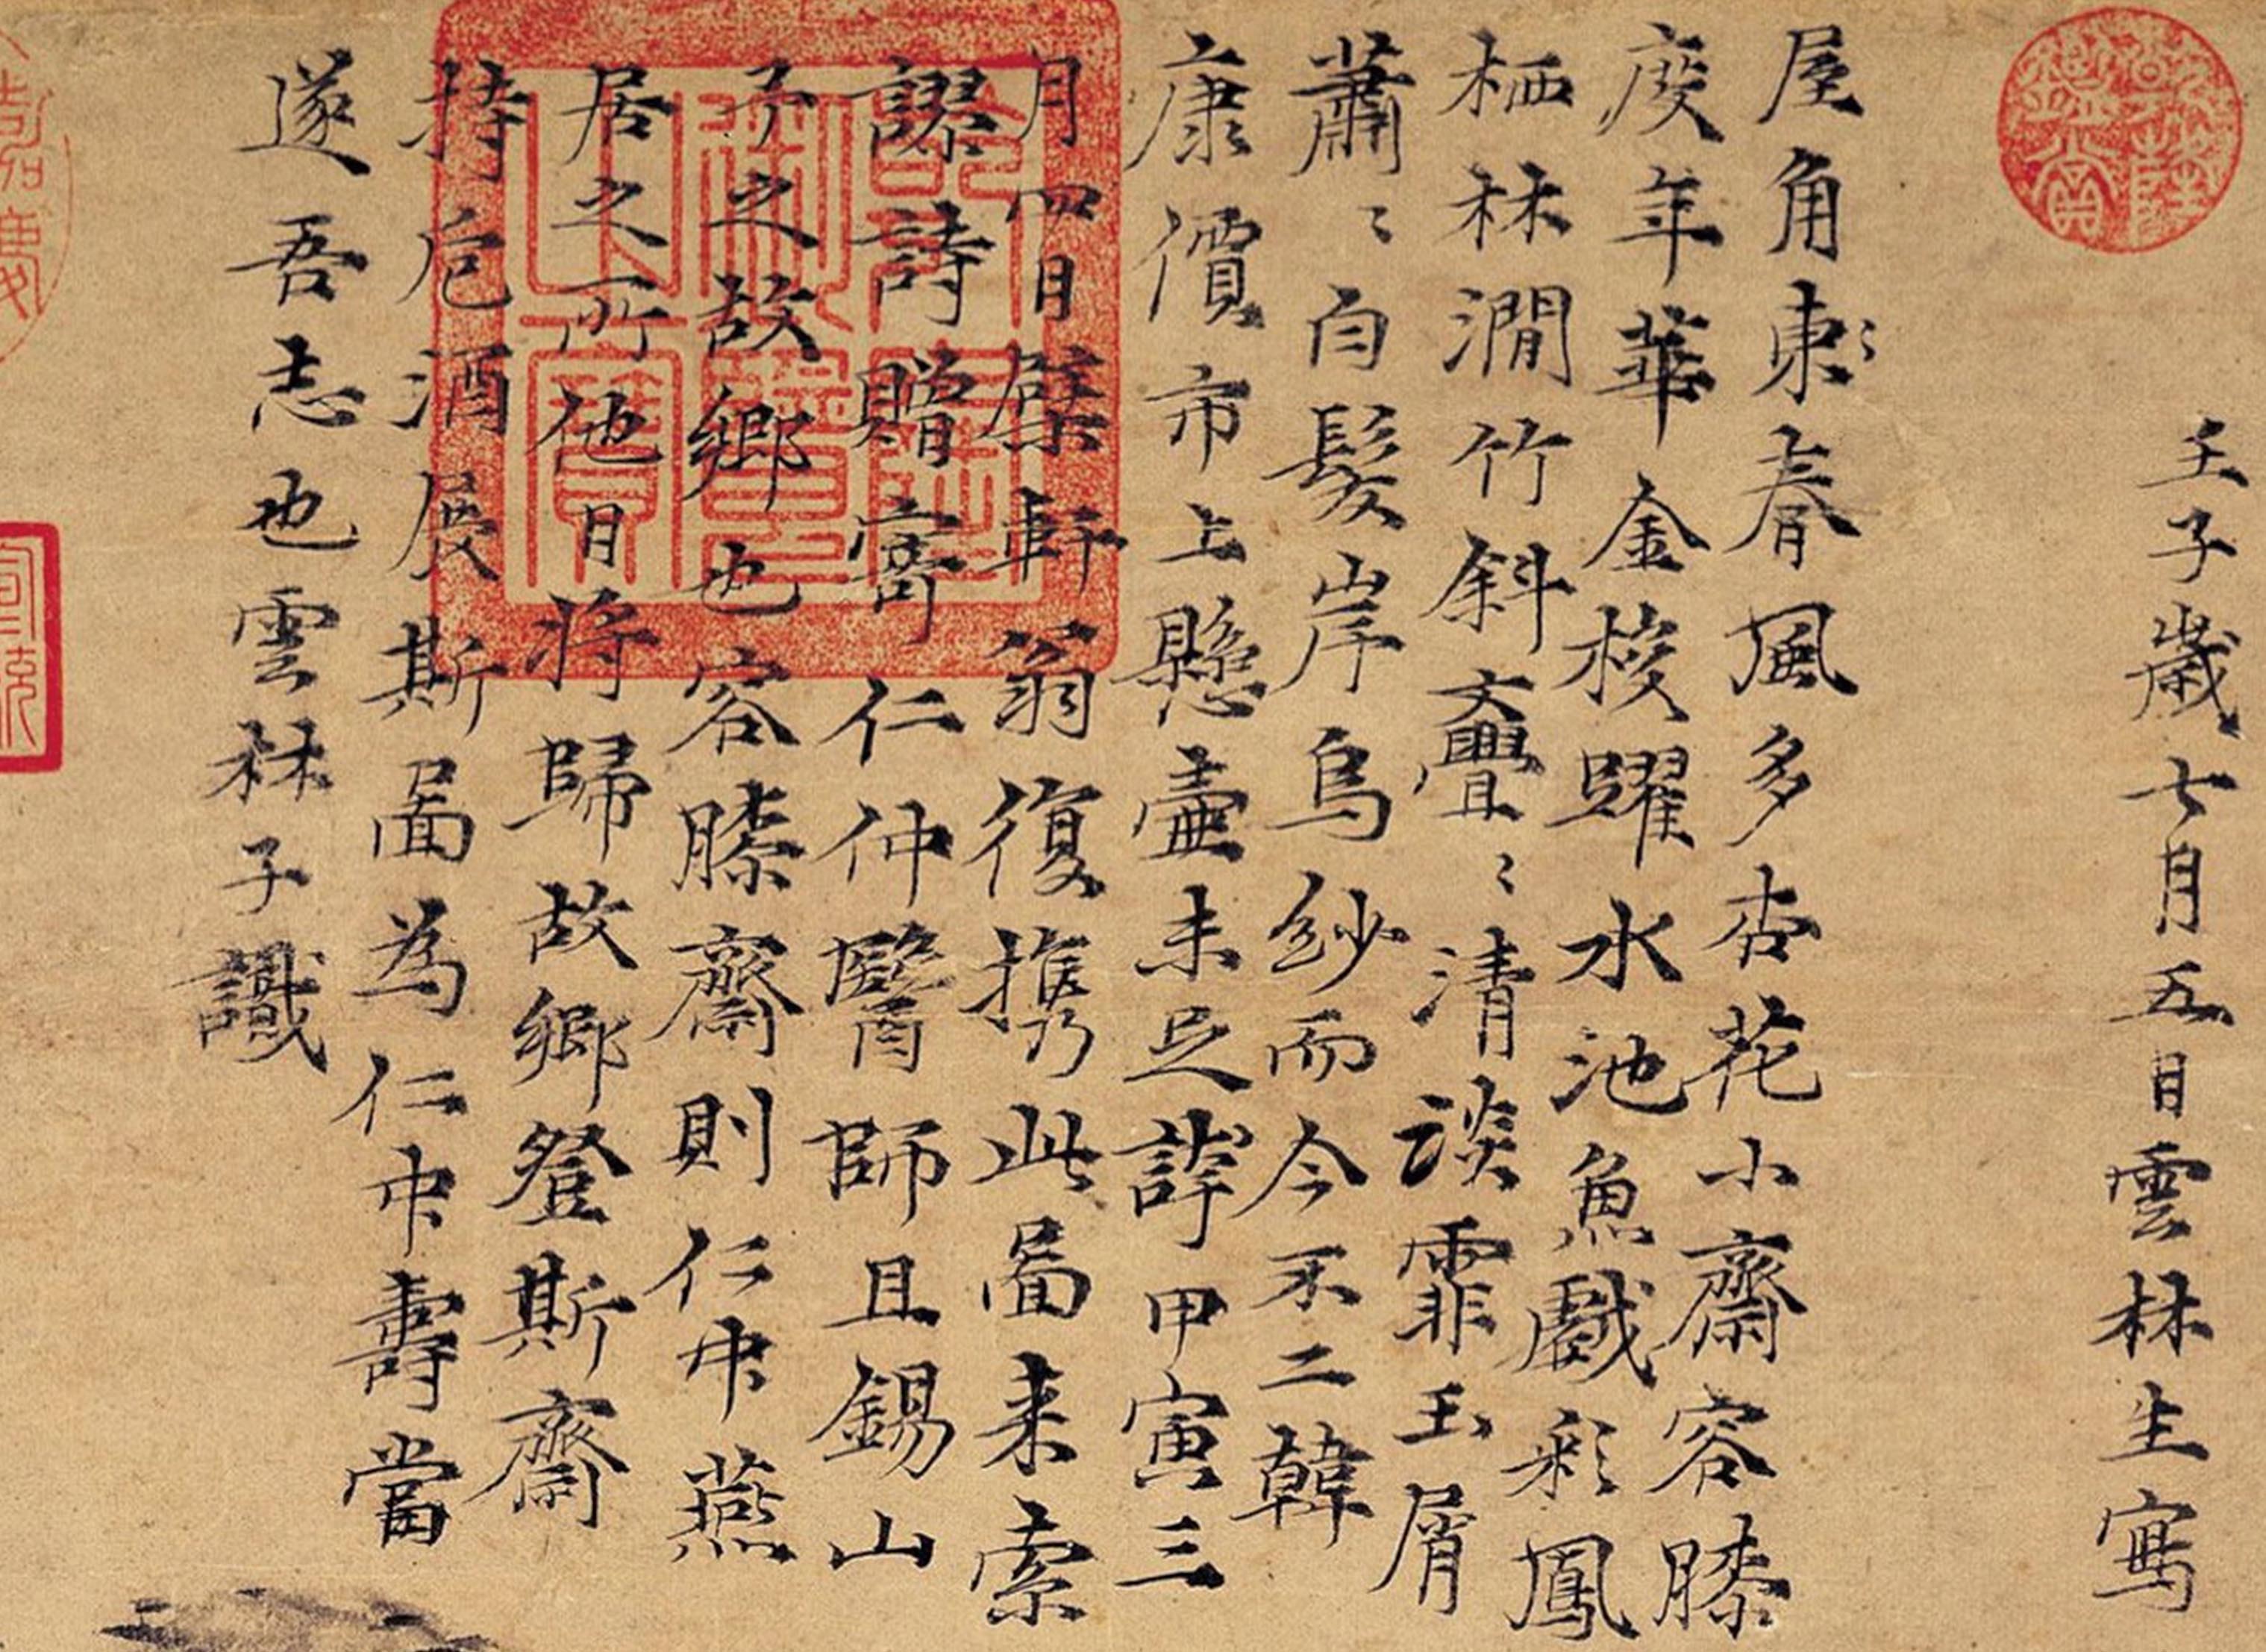 乾隆鑑賞
壬子歲七月五日雲林生寫
屋角東春風多杏花小齋容膝
度年華金梭躍水池魚戲彩鳳
栖林澗竹斜亹〻清談霏玉屑
蕭〻白髮岸烏紗而今不二韓
康價市上懸壺未足誇甲寅三
月四日檗軒翁復携此啚来索
謬詩贈寄仁仲醫師且錫山
予之故鄉也容膝齋則仁中燕
居之所他日將歸故鄉登斯齋
持卮酒展斯啚為仁中壽當
遂吾志也雲林子識